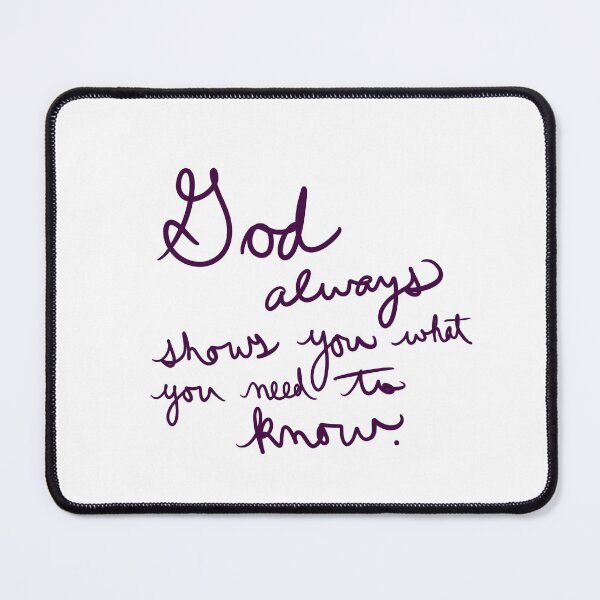 God
always
shows you what
you need to
know.